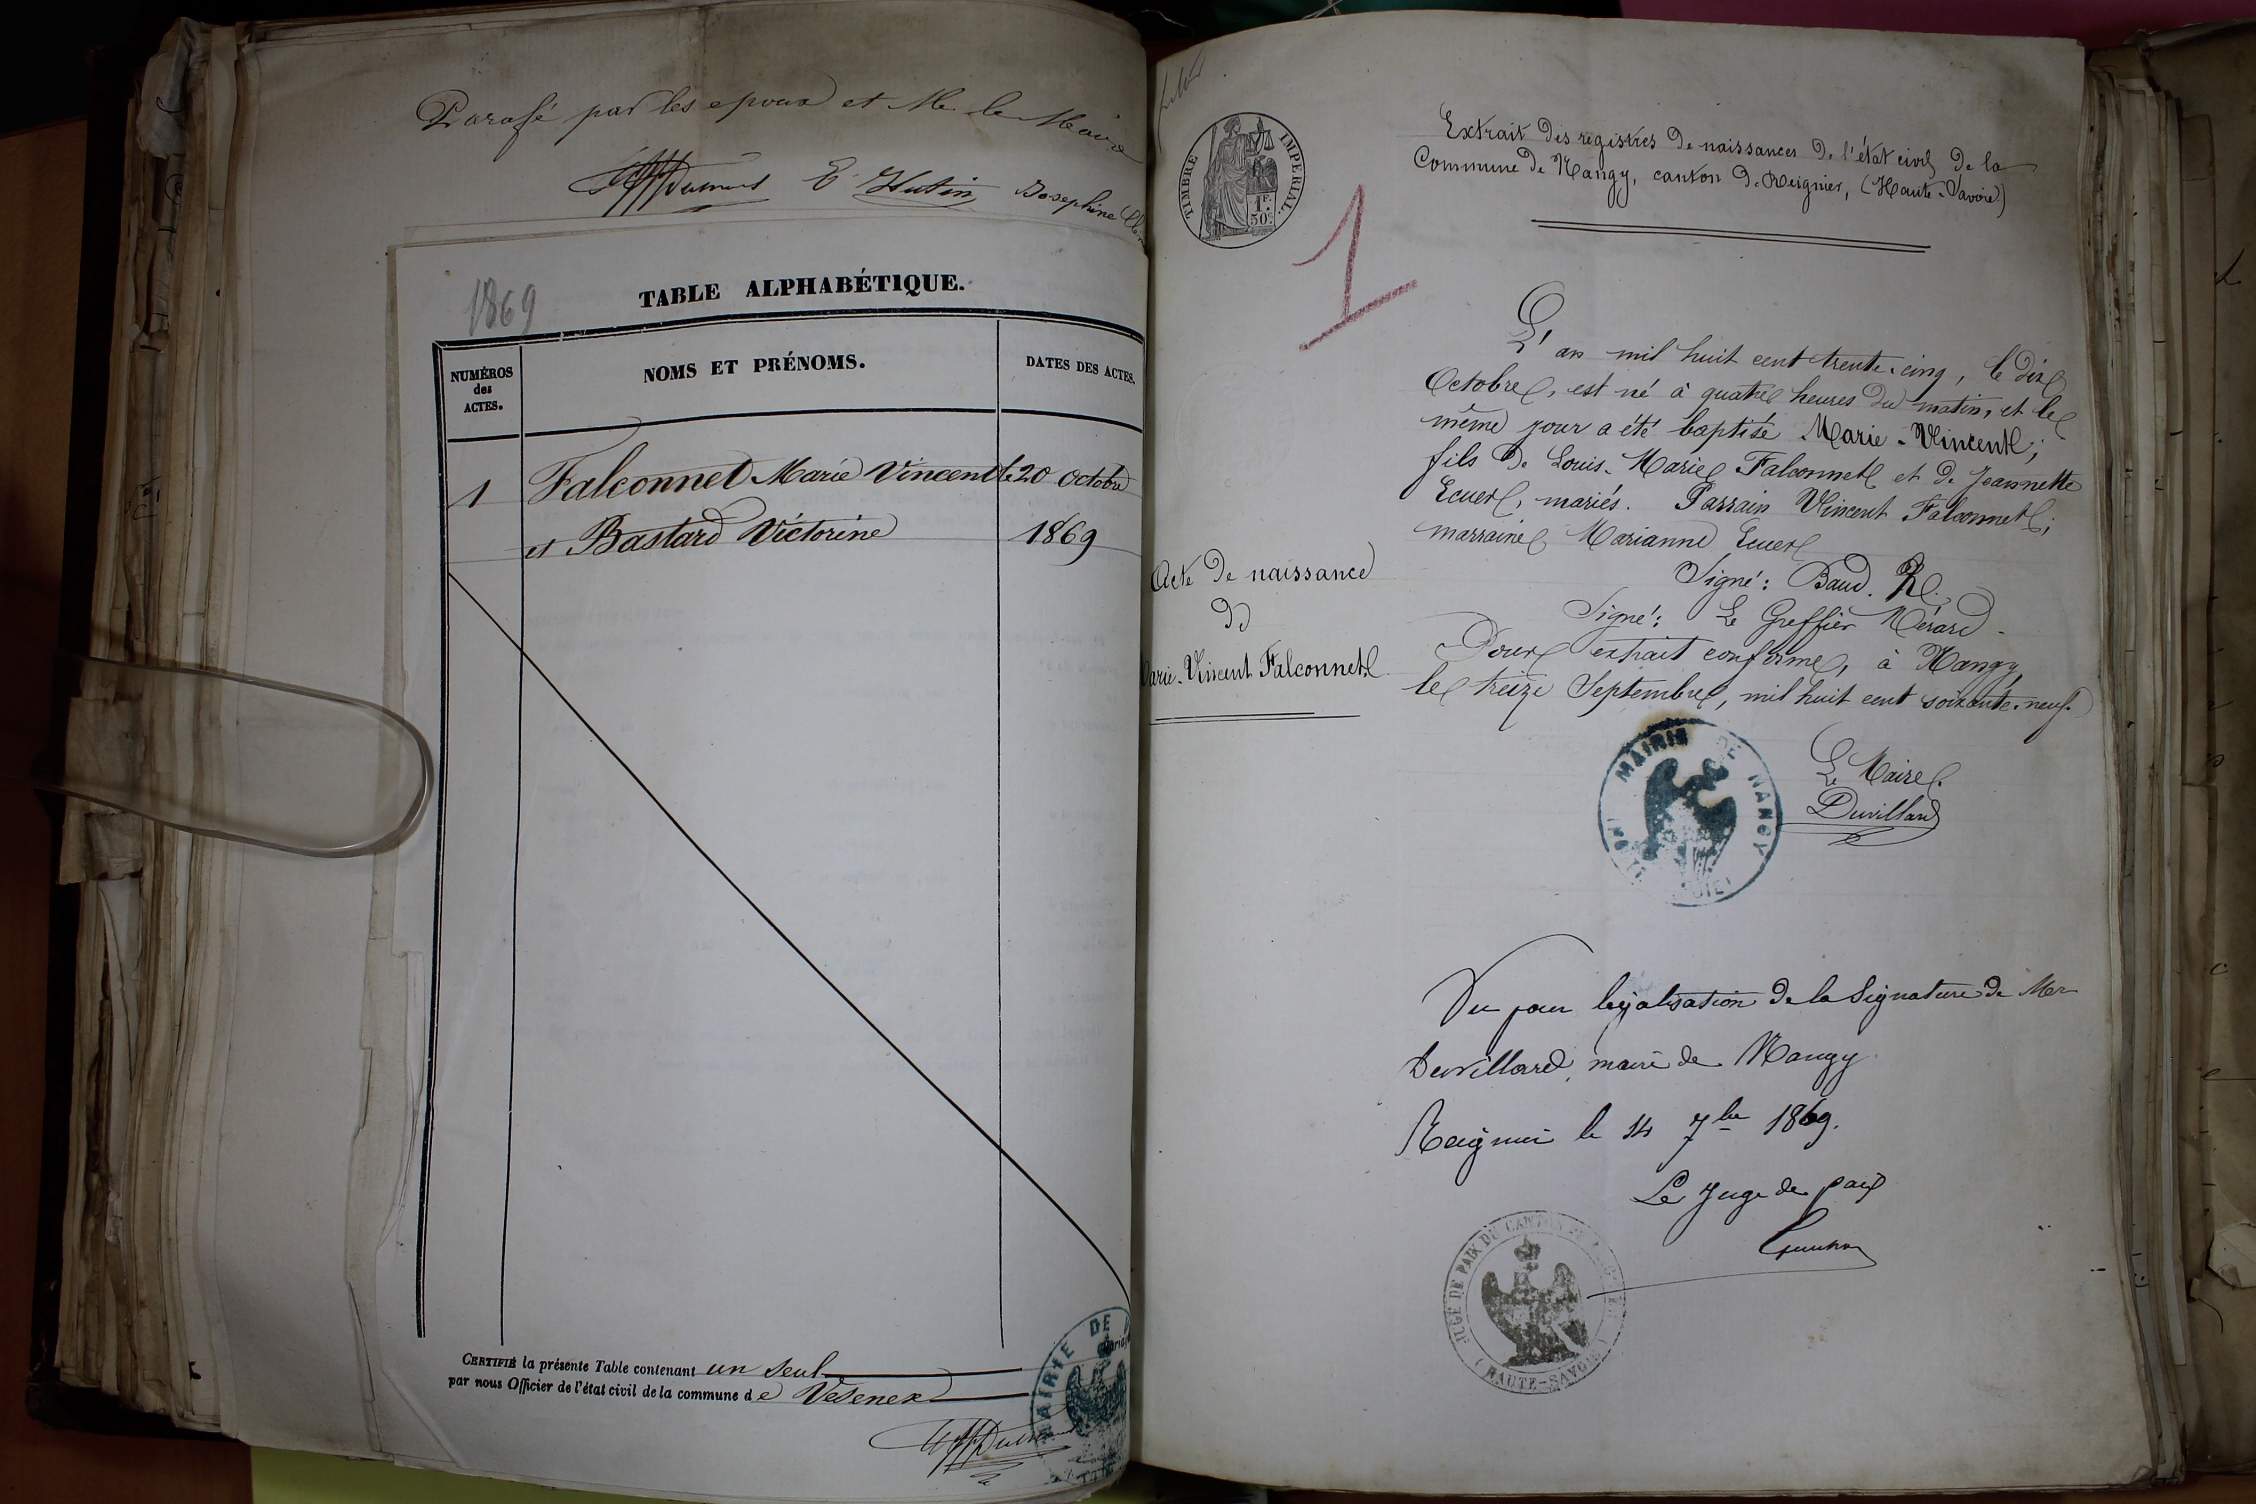 Parafé par les epoux et Mr le Maire
E. Hutin Josephine
1869
TABLE ALPHABÉTIQUE.
NUMÉROS
des
ACTES.
NOMS ET PRÉNOMS.
DATES DES ACTES.
1 Falconnet Marie Vincent le 20 octobre
et Bastard Victorine 1869
CERTIFIÉ la présente Table contenant un seul
par nous Officier de l'état civil de la commune de Vesenex
MAIRIE DE
TIMBRE IMPERIAL.
1F.
50C.
1
Extrait des registres de naissances de l'état civil de la
Commune de Nangy, canton de Reignier, (Haute-Savoie)
Acte de naissance
de
Marie-Vincent Falconnet
L'an mil huit cent trente-cinq, le dix
Octobre, est né à quatre heures du matin, et le
même jour a été baptisé Marie-Vincent;
fils de Louis-Marie Falconnet et de Jeannette
Ecuer, mariés. Parrain Vincent Falconnet;
marraine Marianne Ecuer
Signé: Baud. R.
Signé: Le Greffier Mérard.
Pour extrait conforme, à Nangy,
le treize Septembre, mil huit cent soixante-neuf.
MAIRIE DE NANGY
Le Maire.
Duvillard
Vu pour legalisation de la Signature de Mer
Duvillard, maire de Nangy
Reignier le 14 7bre 1869.
Le Juge de paix
JUGE DE PAIX DU CANTON DE
(HAUTE-SAVOIE)